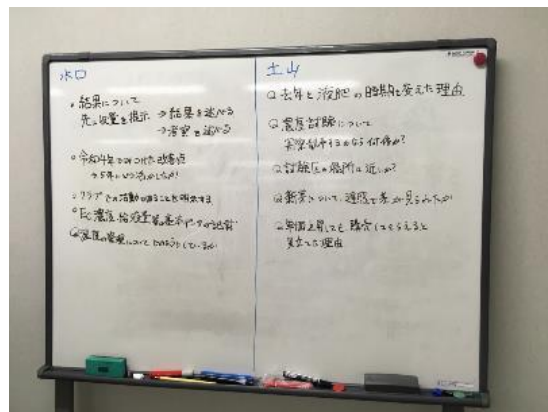 水口
・結果について
先に設置を提示 → 結果を述べる
→ 考察を述べる
・令和4年でみつけた改善点
→ 5年にどう活かしたか?
・クラブでの活動であることを明示する。
・EC濃度、給液量等の基本データの
Q 温度の管理についてどのようにしているか
土山
Q 去年と液肥の時期を変えた理由
Q 濃度試験について
実際に するなら何倍か?
Q 試験区の場所は近いか?
Q 新芽について、達感で差が見られたか
Q 単価上昇しても、購売してもらえると
見立てた理由